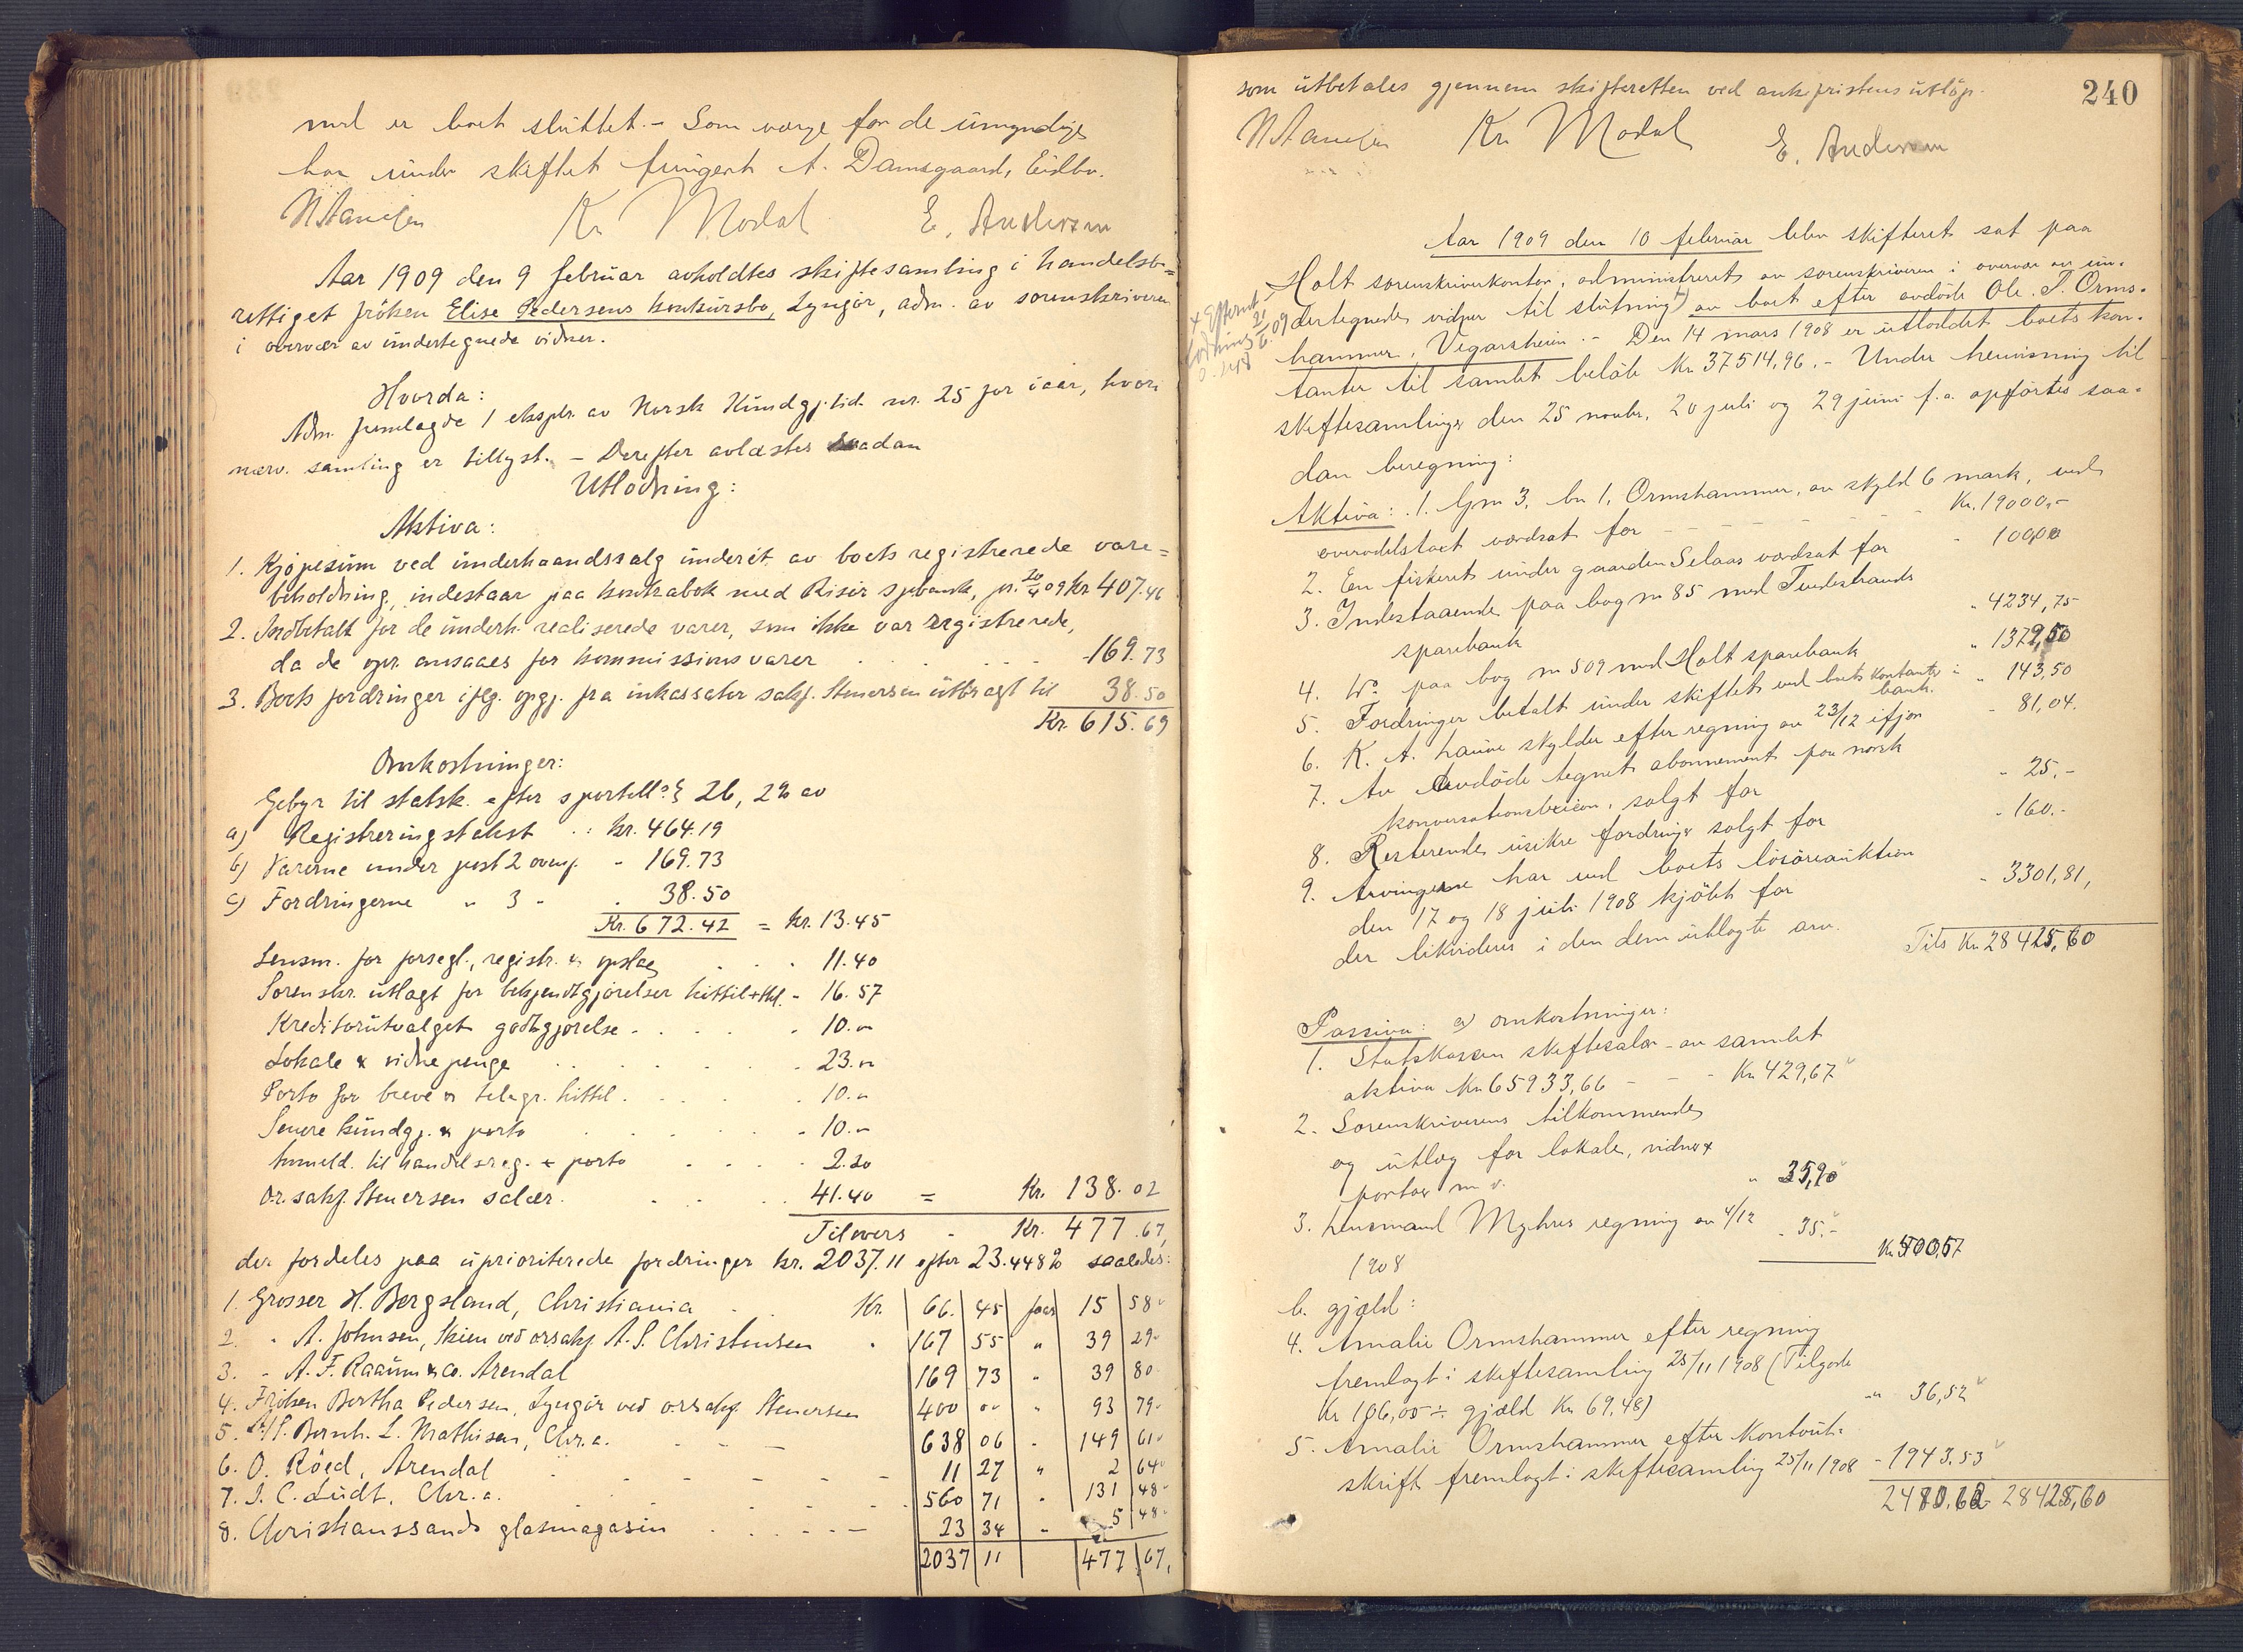 med er boet sluttet. - Som værge for de umyndige
har under skiftet fungert A. Damsgaard, Eidbo.
Kr Modal E. Andersen
Aar 1909 den 9 februar avholdtes skiftesamling i handelsbe=
rettiget frøken Elise Pedersens konkursbo, Lyngør, adm. av sorenskriveren
i overvær av undertegnede vidner.
Hvorda:
Adm. fremlagde 1 ekspl. av Norsk Kundgj.tid. nr. 25 for iaar, hvori
nærv. samling er tillyst. - Derefter avlæstes saadan
Utlodning:
Aktiva:
1. Kjøpesum ved underhaandssalg underet. av boets registrerede vare=
beholdning, indestaar paa kontrabok med Risør spbank, pr. 20/4 09 kr 407.46
2. Indbetalt for de underh. realiserede varer, som ikke var registrerede,
da de opr. ansaaes for kommissionsvarer - 169.73
3. Boets fordringer iflg. opgj. fra inkassator sakf. Stenersen utbragt til 38.50
Kr. 615.69
Omkostninger:
Gebyr til statsk. efter sportell. § 26, 2% av
a) Registreringstakst . : kr. 464.19
b) Varerne under post 2 ovenf. - 169.73
c) Fordringerne " 3 - . 38.50
Kr. 672.42 = kr. 13.45
Lensm. for forsegl., registr. & opslag . . . 11.40
Sorenskr. utlagt for bekjendtgjørelser hittil - 16.57
Kreditorutvalget godtgjørelse - . . . . 10.-
Lokale & vidnepenge . . . . . 23.-
Porto for breve & telegr. hittil . . . . 10.-
Senere kundgj. & porto . . . . - 10.-
Anmeld. til handelsreg. & porto . . . . 2.20
Or.sakf. Stenersen salær . . . . 41.40 = Kr. 138.02
Tilovers - Kr. 477.67,
der fordeles paa uprioriterede fordringer kr. 2037.11 efter 23.448% saaledes:
1. Grosser H. Bergsland, Christiania . . Kr. 66. 45 faar 15 58
2. - A. Johnsen, Skien ved orsakf. A. S. Christensen . 167 55 " 39 29
3. - A. F. Raaum & Co. Arendal 169 73 - 39 80
4. Frøken Bertha Pedersen, Lyngør ved orsakf. Stenersen 400 00 - 93 79
5. A/S. Bernh. L. Mathisen, Chr.a. 638 06 - 149 61
6. O. Röed, Arendal 11 27 " 2 64
7. J. C. Ludt, Chr.a. 560 71 . 131 48
8. Christianssands glasmagasin 23 34 - 5 48
2037 11 477 67,
som utbetales gjennem skifteretten ved ankefristens utløp.
240
Kr Modal E. Andersen
Aar 1909 den 10 februar blev skifteret sat paa
Holt sorenskriverkontor, administreret av sorenskriveren i overvær av un-
dertegnede vidner til slutning av boet efter avdøde Ole. T. Orms-
hammer, Vegarsheien. - Den 14 mars 1908 er utloddet boets kon-
tanter til samlet beløb Kr 37514,96. - Under henvisning til
skiftesamlinger den 25 novbr, 20 juli og 29 juni f.a. opførtes saa-
dan beregning:
Aktiva: 1. Gnr 3, bn 1, Ormshammer, av skyld 6 mark, ved
overodelstaxt værdsat for - - - Kr. 19000,-
2. En fiskeret under gaarden Selaas værdsat for - 100,00
3. Indestaaende paa bog nr 85 med Tvedestrands
sparebank " 4234,75
4. Do paa bog nr 509 med Holt sparebank " 1379,50
5. Fordringer betalt under skiftet ved boets kontanter i
bank. " 143,50
6. K. A. Lauve skylder efter regning av 23/12 ifjor - 81,04.
7. Av avdøde tegnet abonnement paa norsk
konversationslexicon, solgt for - 25.-
8. Resterende usikre fordringer solgt for - 160.-
9. Arvingerne har ved boets løsøreauktion
den 17 og 18 juli 1908 kjøbt for - 3301,81,
der likvideres i den dem utlagte arv.
Tils Kr 28425,60
Passiva: a) omkostninger:
1. Statskassen skiftesalær - av samlet
aktiva Kr 65933,66 - - - Kr 429,67
2. Sorenskriverens tilkommende
og utlæg for lokale, vidner &
portoer m. v. " 35,90
3. Lensmand Myhres regning av 4/12 - 35.-
1908 Kr. 500,57
b. gjæld:
4. Amalie Ormshammer efter regning
fremlagt i skiftesamling 25/11 1908 (Tilgode
Kr 106,00 ÷ gjæld Kr 69,48) - 36,52
5. Amalie Ormshammer efter kontout-
skrift fremlagt i skiftesamling 25/11 1908 - 1943.53
2480.62 28425,60